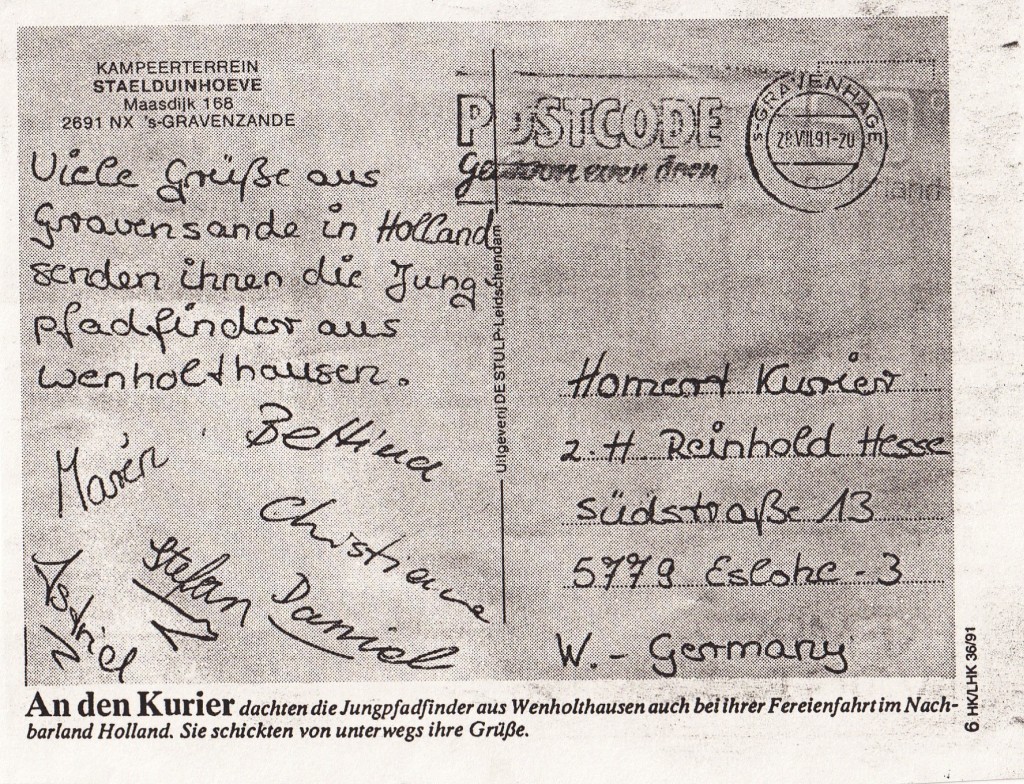 KAMPEERTERREIN
STAELDUINHOEVE
Maasdijk 168
2691 NX 's-GRAVENZANDE
Viele Grüße aus
Gravensande in Holland
senden ihnen die Jung-
pfadfinder aus
Wenholthausen.
Bettina
Maren
Christiane
Stefan
Daniel
POSTCODE
's-GRAVENHAGE
28.VIII.91-20
Uitgeverij DE STULP-Leidschendam
Homert Kurier
z. H. Reinhold Hesse
Südstraße 13
5779 Eslohe - 3
W. - Germany
An den Kurier dachten die Jungpfadfinder aus Wenholthausen auch bei ihrer Fereienfahrt im Nach-
barland Holland. Sie schickten von unterwegs ihre Grüße.
6 HKV/LHK 36/91